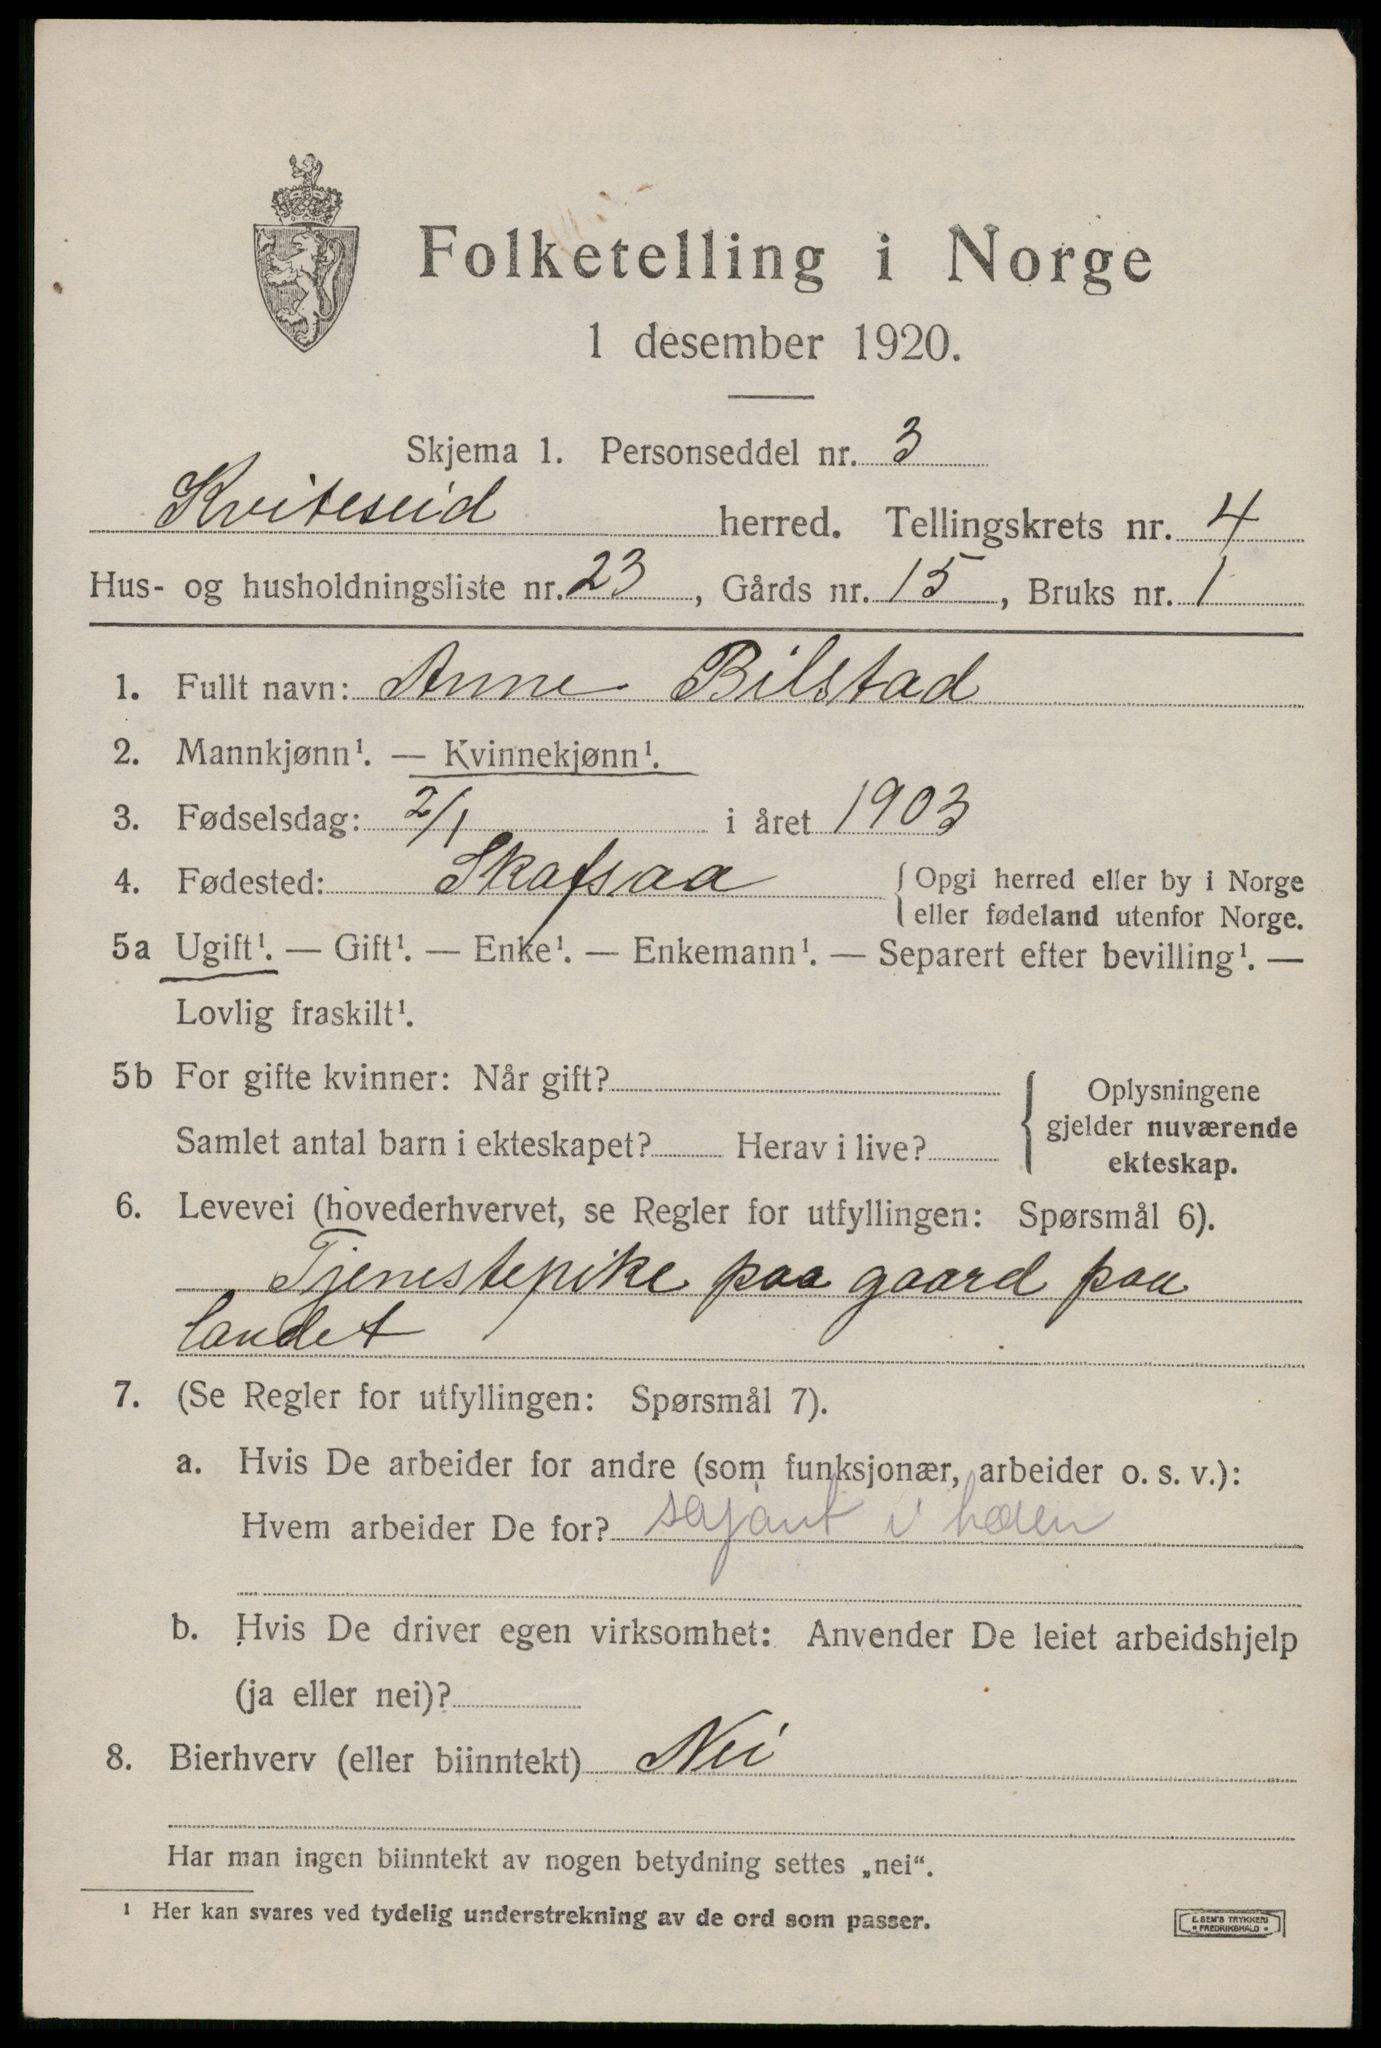 Folketelling i Norge
1 desember 1920.
Skjema 1. Personseddel nr. 3
Kviteseid herred. Tellingskrets nr. 4
Hus- og husholdningsliste nr. 23, Gårds nr. 15, Bruks nr. 1
1. Fullt navn: Anne Bilstad
2. Mannkjønn¹. — Kvinnekjønn¹.
3. Fødselsdag: 2/1 i året 1903
4. Fødested: Skafsaa {Opgi herred eller by i Norge
eller fødeland utenfor Norge.
5a Ugift¹. — Gift¹. — Enke¹. — Enkemann¹. — Separert efter bevilling¹. —
Lovlig fraskilt¹.
5b For gifte kvinner: Når gift?
Samlet antal barn i ekteskapet? Herav i live?
{Oplysningene
gjelder nuværende
ekteskap.
6. Levevei (hovederhvervet, se Regler for utfyllingen: Spørsmål 6).
Tjenestepike paa gaard paa
landet
7. (Se Regler for utfyllingen: Spørsmål 7).
a. Hvis De arbeider for andre (som funksjonær, arbeider o. s. v.):
Hvem arbeider De for? i
b. Hvis De driver egen virksomhet: Anvender De leiet arbeidshjelp
(ja eller nei)?
8. Bierhverv (eller biinntekt) Nei
Har man ingen biinntekt av nogen betydning settes „nei“.
¹ Her kan svares ved tydelig understrekning av de ord som passer.
E. SEM'S TRYKKERI
• FREDRIKSHALD •